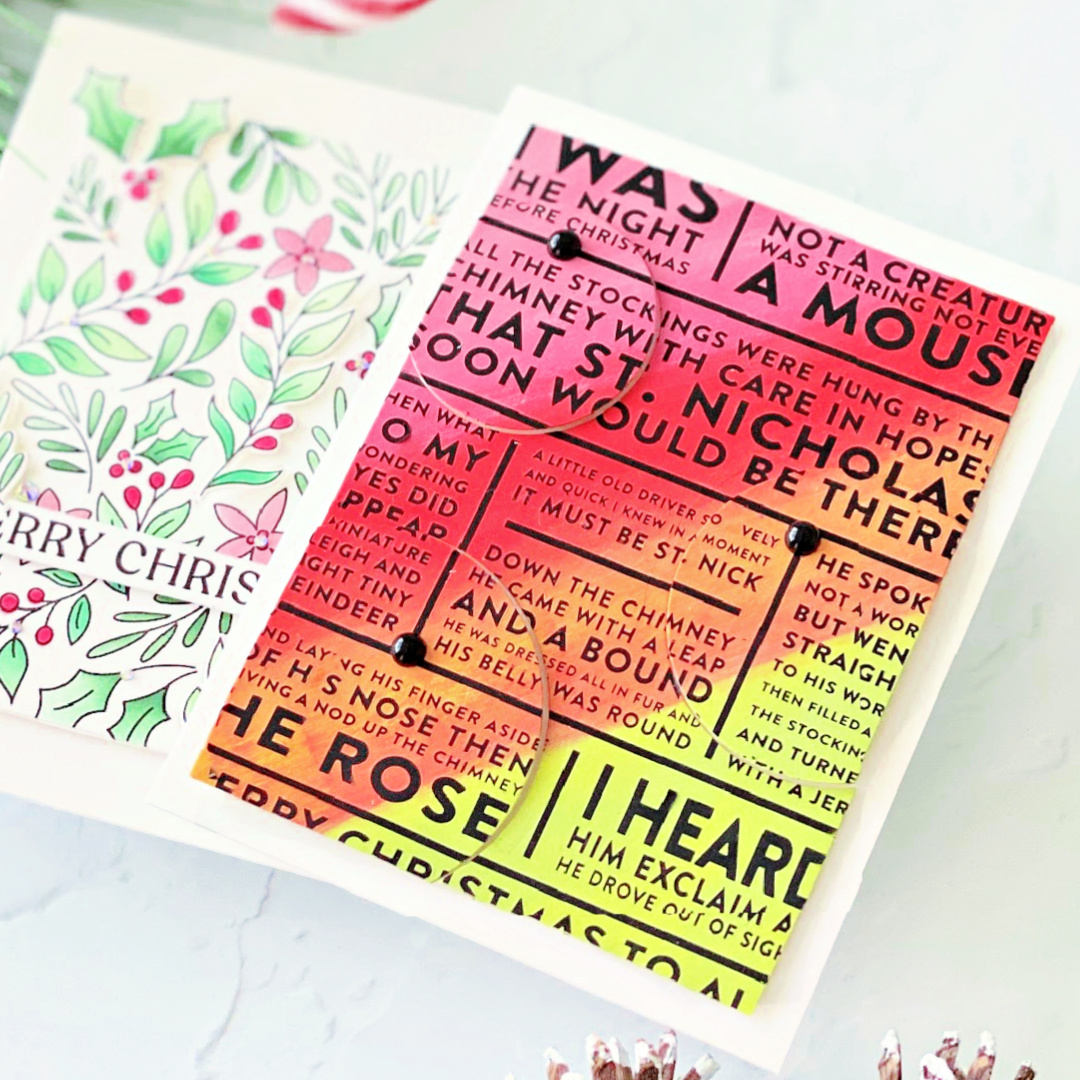 ERRY CHRIS
WAS
HE NIGHT
EFORE CHRISTMAS
NOT A CREATUR
WAS STIRRING NOT EVE
A MOUS
ALL THE STOCKINGS WERE HUNG BY TH
CHIMNEY WITH CARE IN HOPES
THAT ST. NICHOLAS
SOON WOULD BE THERE
HEN WHAT
O MY
ONDERING
YES DID
APPEAR
MINIATURE
LEIGH AND
IGHT TINY
EINDEER
A LITTLE OLD DRIVER SO VELY
AND QUICK I KNEW IN A MOMENT
IT MUST BE ST. NICK
DOWN THE CHIMNEY
HE CAME WITH A LEAP
AND A BOUND
HE WAS DRESSED ALL IN FUR AND
HIS BELLY WAS ROUND
HE SPOK
NOT A WOR
BUT WEN
STRAIGH
TO HIS WOR
THEN FILLED A
THE STOCKING
AND TURNE
WITH A JER
ND LAYING HIS FINGER ASIDE
OF HIS NOSE THEN
IVING A NOD UP THE CHIMNEY
HE ROSE
I HEARD
HIM EXCLAIM A
HE DROVE OUT OF SIGH
ERRY CHRISTMAS TO AL